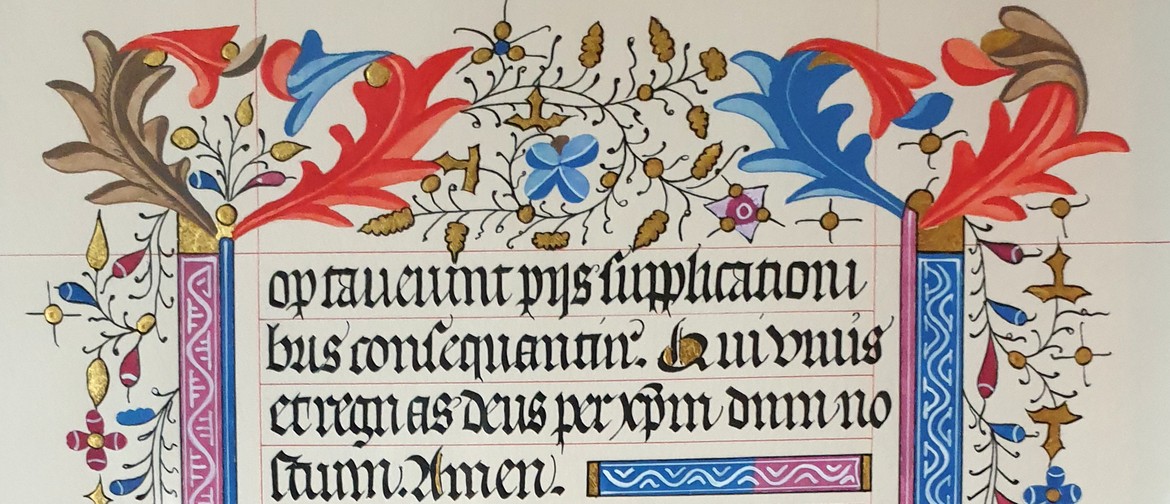 optauerunt pijs supplicationi
bus consequantur. Qui viuis
et regnas deus per xp̄m dnm no
strum. Amen.